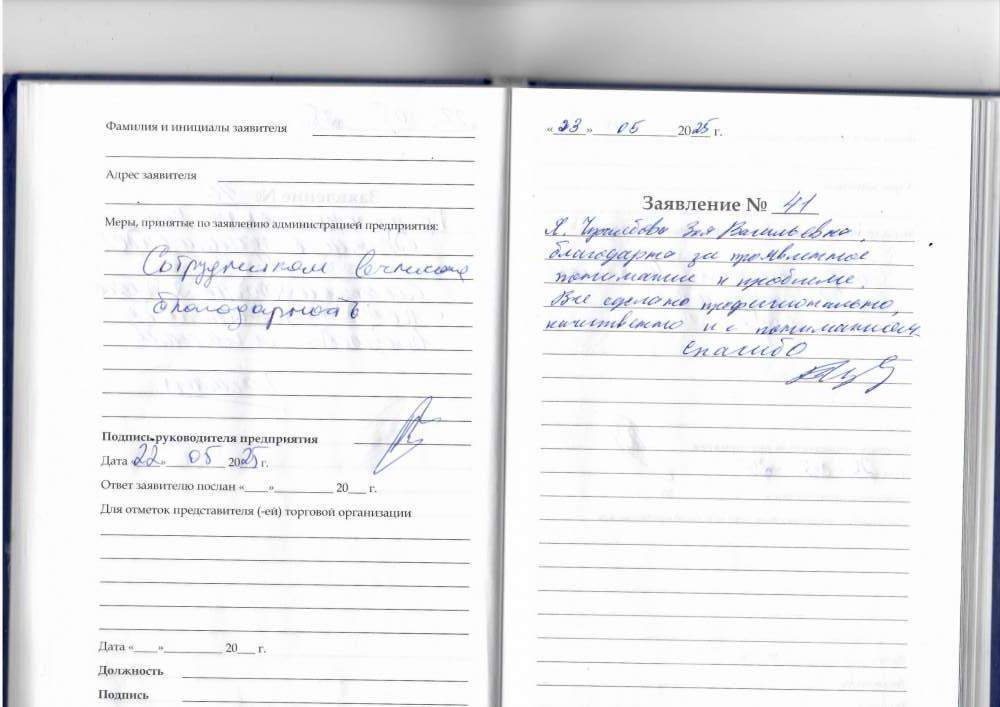 Фамилия и инициалы заявителя
Адрес заявителя
Меры, принятые по заявлению администрацией предприятия:
Сотрудником
благодарность
Подпись руководителя предприятия
Дата «22» 05 2025 г.
Ответ заявителю послан «____»__________ 20___ г.
Для отметок представителя (-ей) торговой организации
Дата «____»__________ 20___ г.
Должность
Подпись
«23» 05 2025 г.
Заявление № 41
Я, Зоя Васильевна,
благодарна за проявленное
понимание к проблеме.
Все сделано профессионально,
качественно и с пониманием.
Спасибо